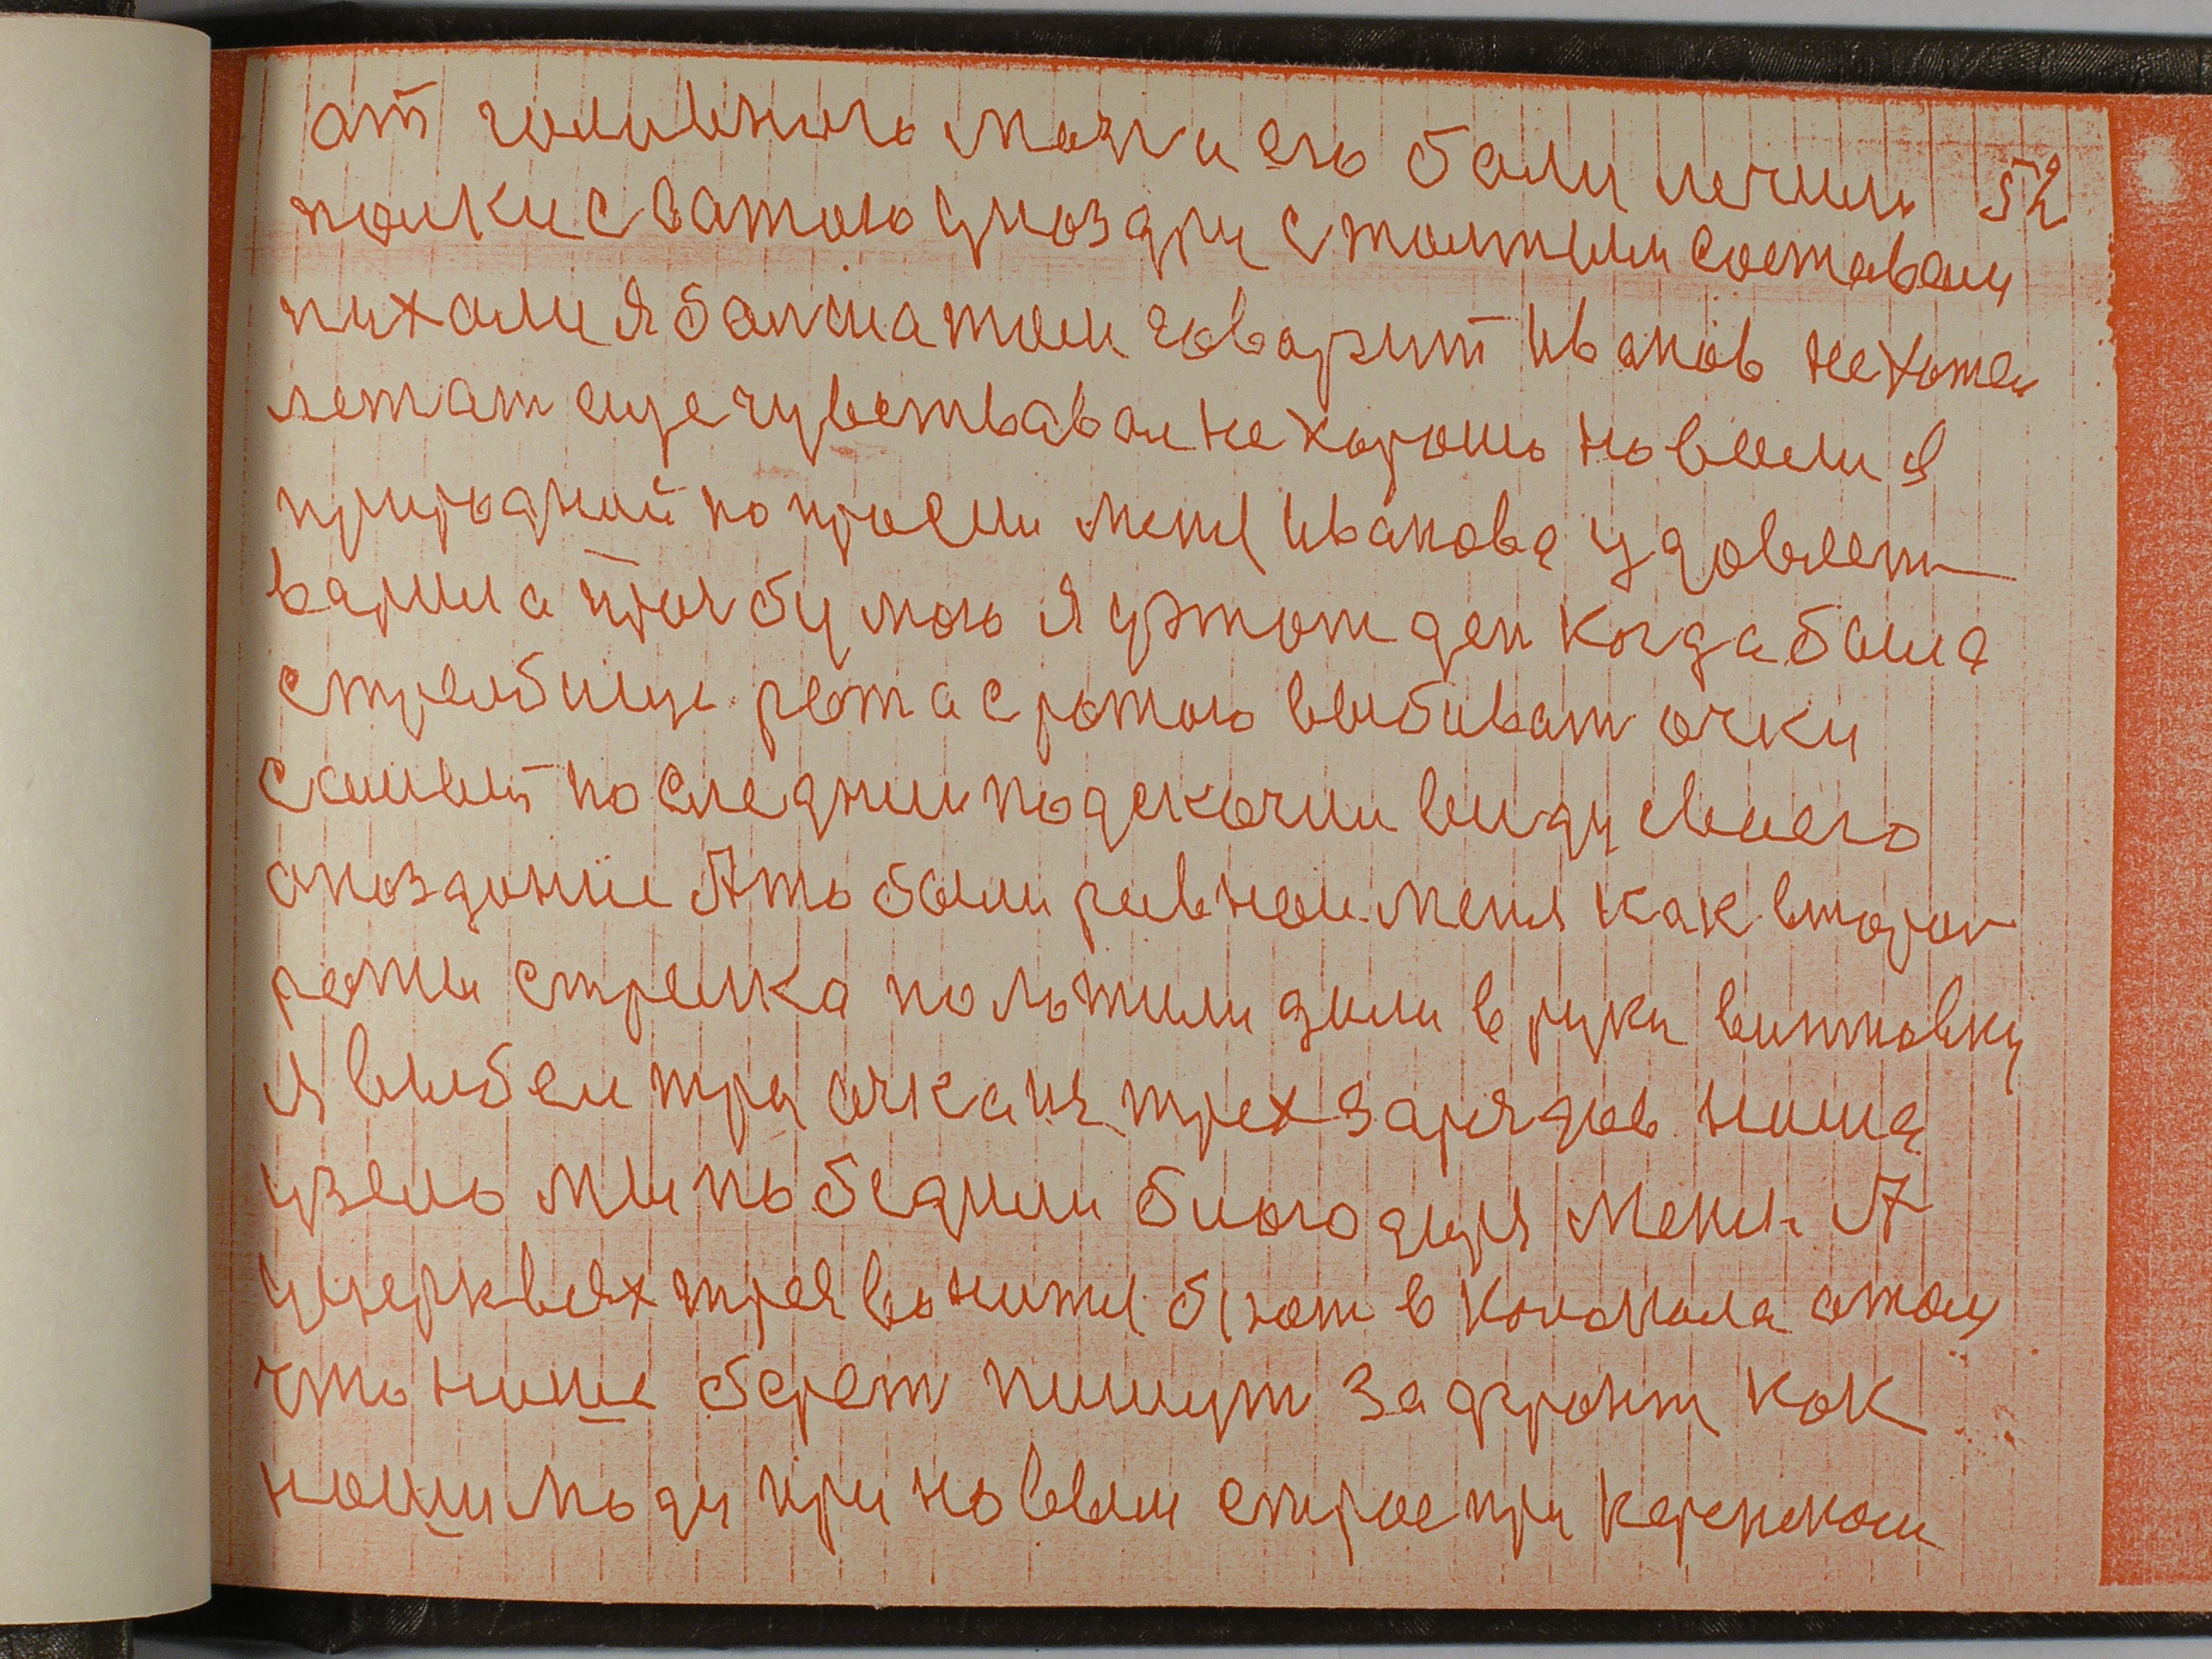 от головного мозга его бали лечили 52
полки с ватою у ноздри с толтыми составами
пихали я балшатом говарит Иванов не хотел
летат еще чувствавал не хорошо но взели я
природной попросил меня Иванова удовлет
варила прозбу мою я у этот ден когда была
стрелбище рота с ротою выбиват очки
самый последним подскочил виду своего
опоздание А то было равном меня как второй
роты стрелка положили дали в руки винтовку
я выбел три очка из трех зарядов наша
узело мы победили благодаря меня А
у церквях трезвонить бют в колокола о том
что наше берет пишут за фронт как
наши люди при новым строе при Керенском